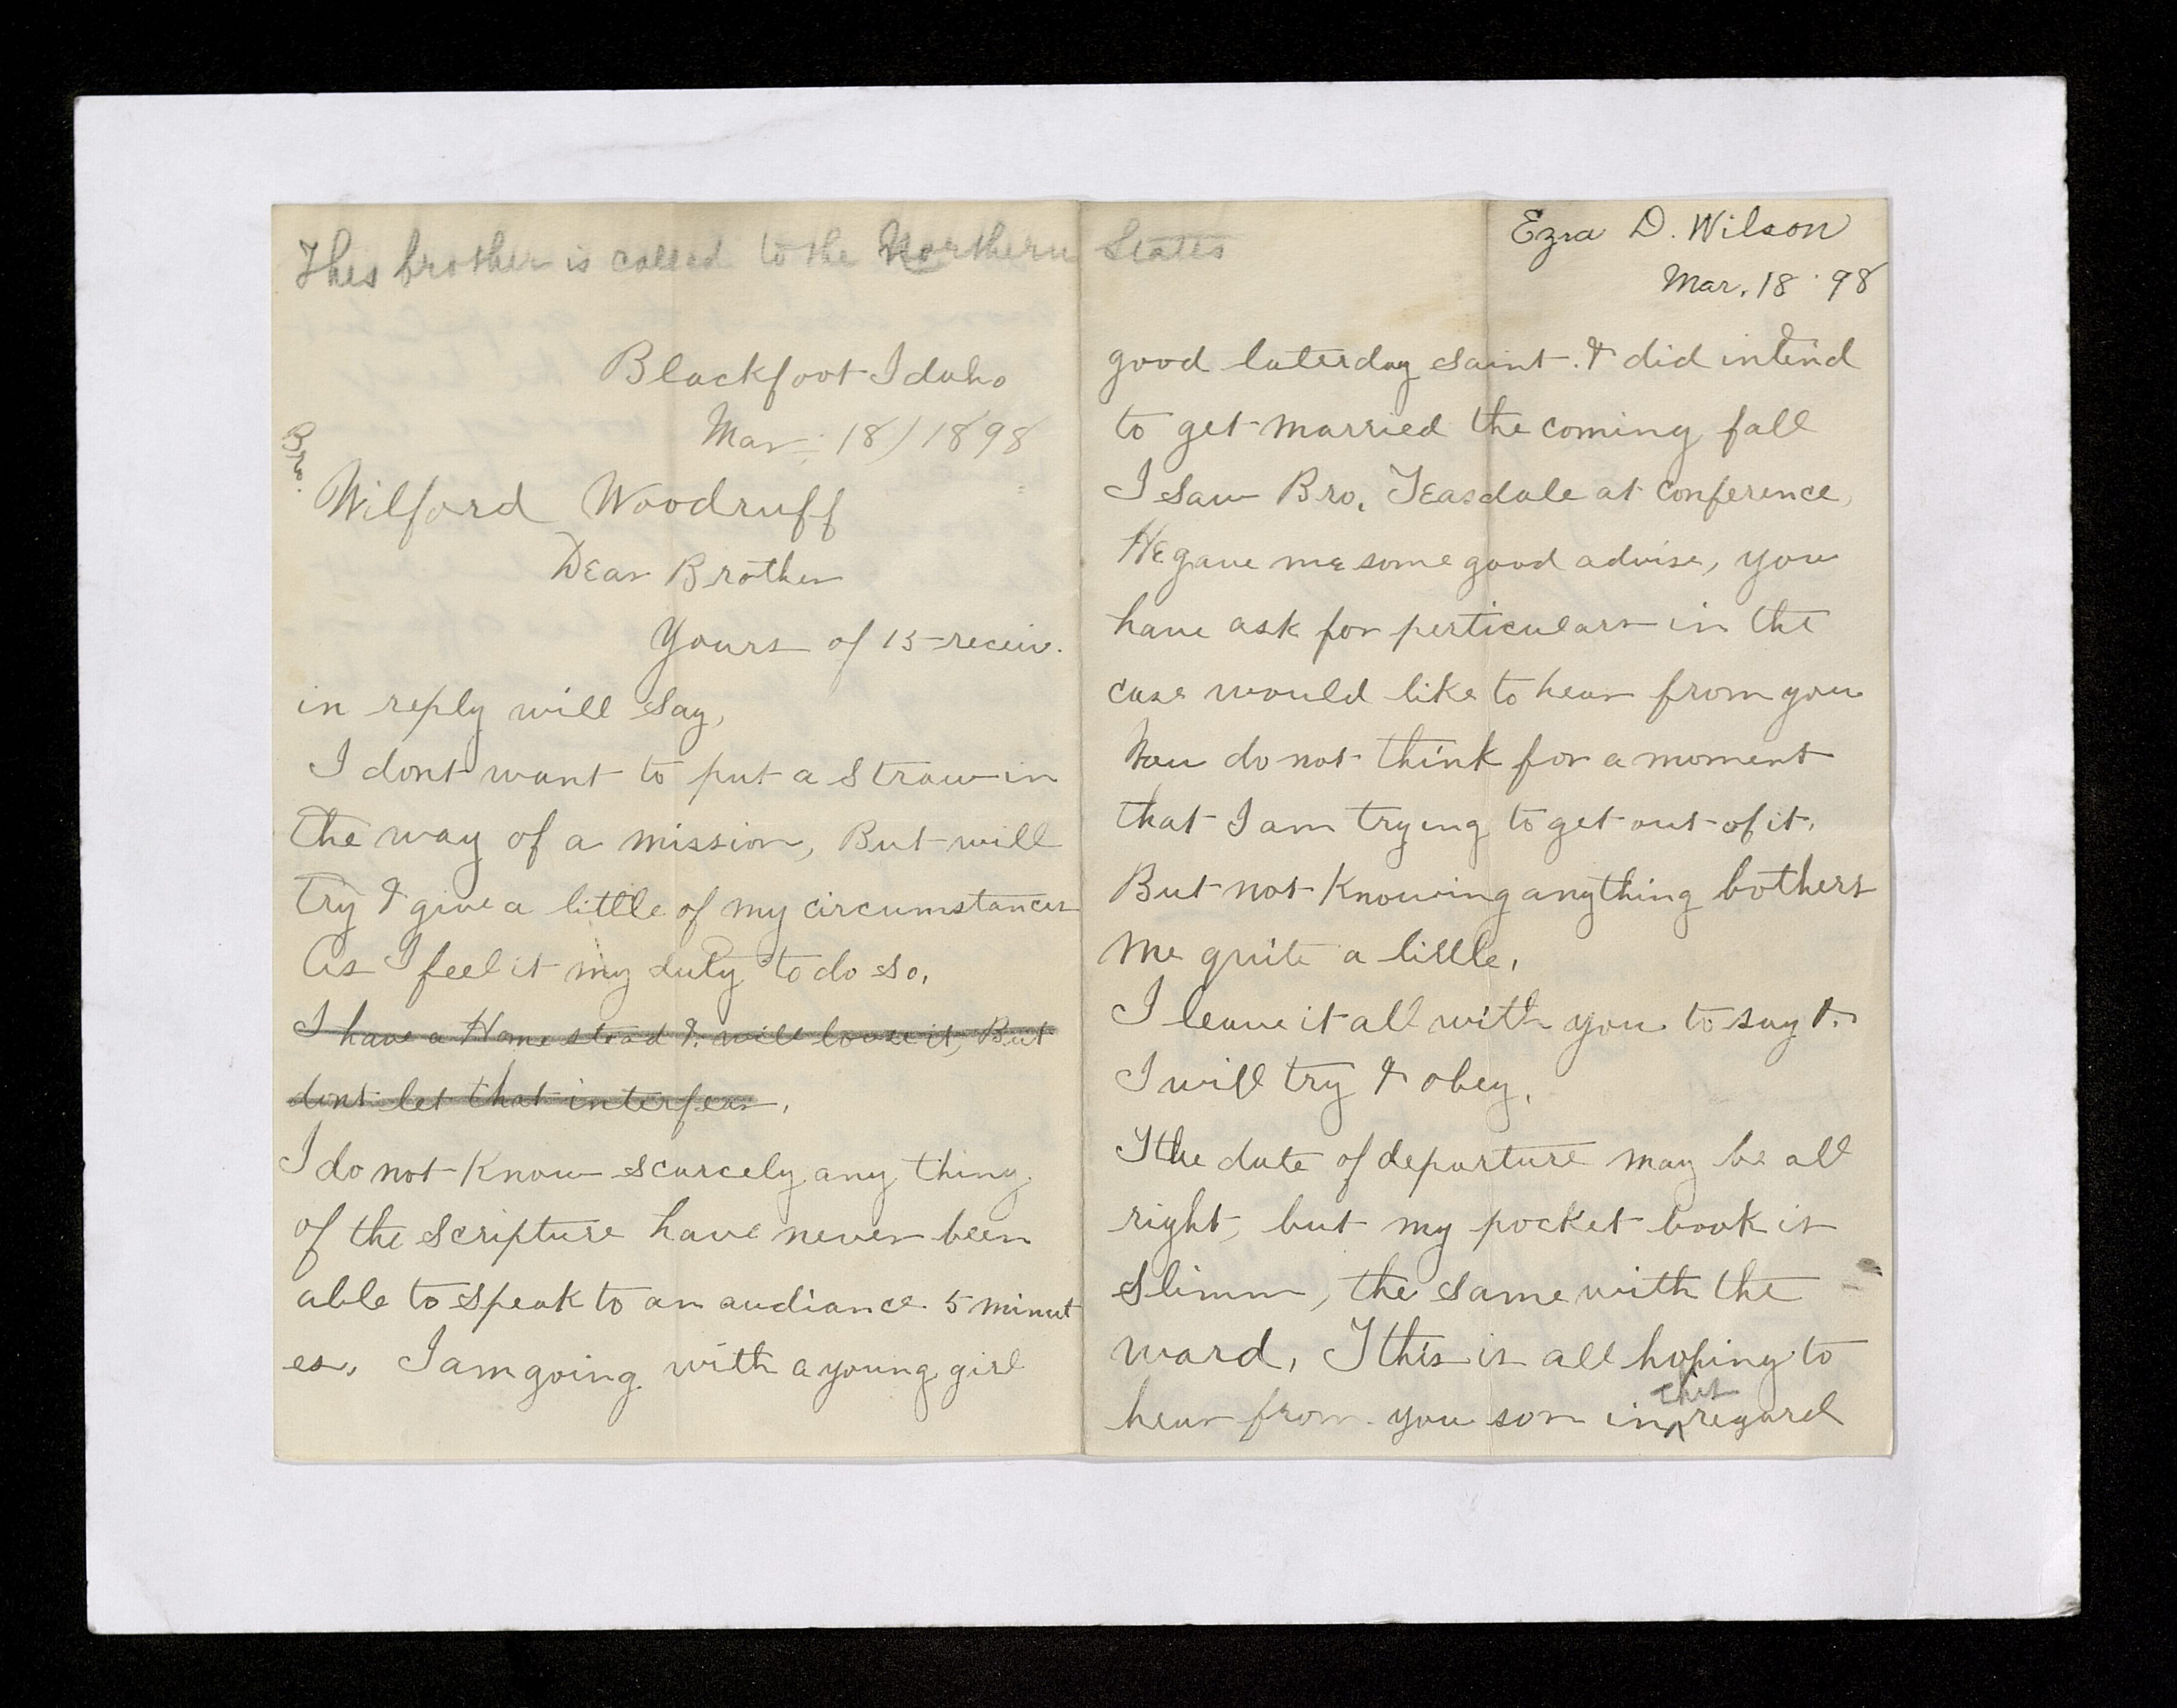 This brother is called to the Northern States
Ezra D. Wilson
Mar. 18 '98
Blackfoot Idaho
Mar. 18/1898
Bro.
Wilford Woodruff
Dear Brother
Yours of 15 receiv.
in reply will say,
I dont want to put a straw in
the way of a mission, But will
try & give a little of my circumstances
As I feel it my duty to do so.
I have a Home stead & will loose it, But
dont let that interfear.
I do not know scarcely any thing
of the scripture have never been
able to speak to an audiance 5 minut
es. I am going with a young girl
good laterday saint. & did intend
to get married the coming fall
I saw Bro. Teasdale at conference,
He gave me some good advise, you
have ask for perticulars in the
case would like to hear from you
Now do not think for a moment
that I am trying to get out of it.
But not knowing anything bothers
me quite a little.
I leave it all with you to say &
I will try & obey.
The date of departure may be all
right, but my pocket book is
slimm, the same with the
ward. This is all hoping to
hear from you son in this regard